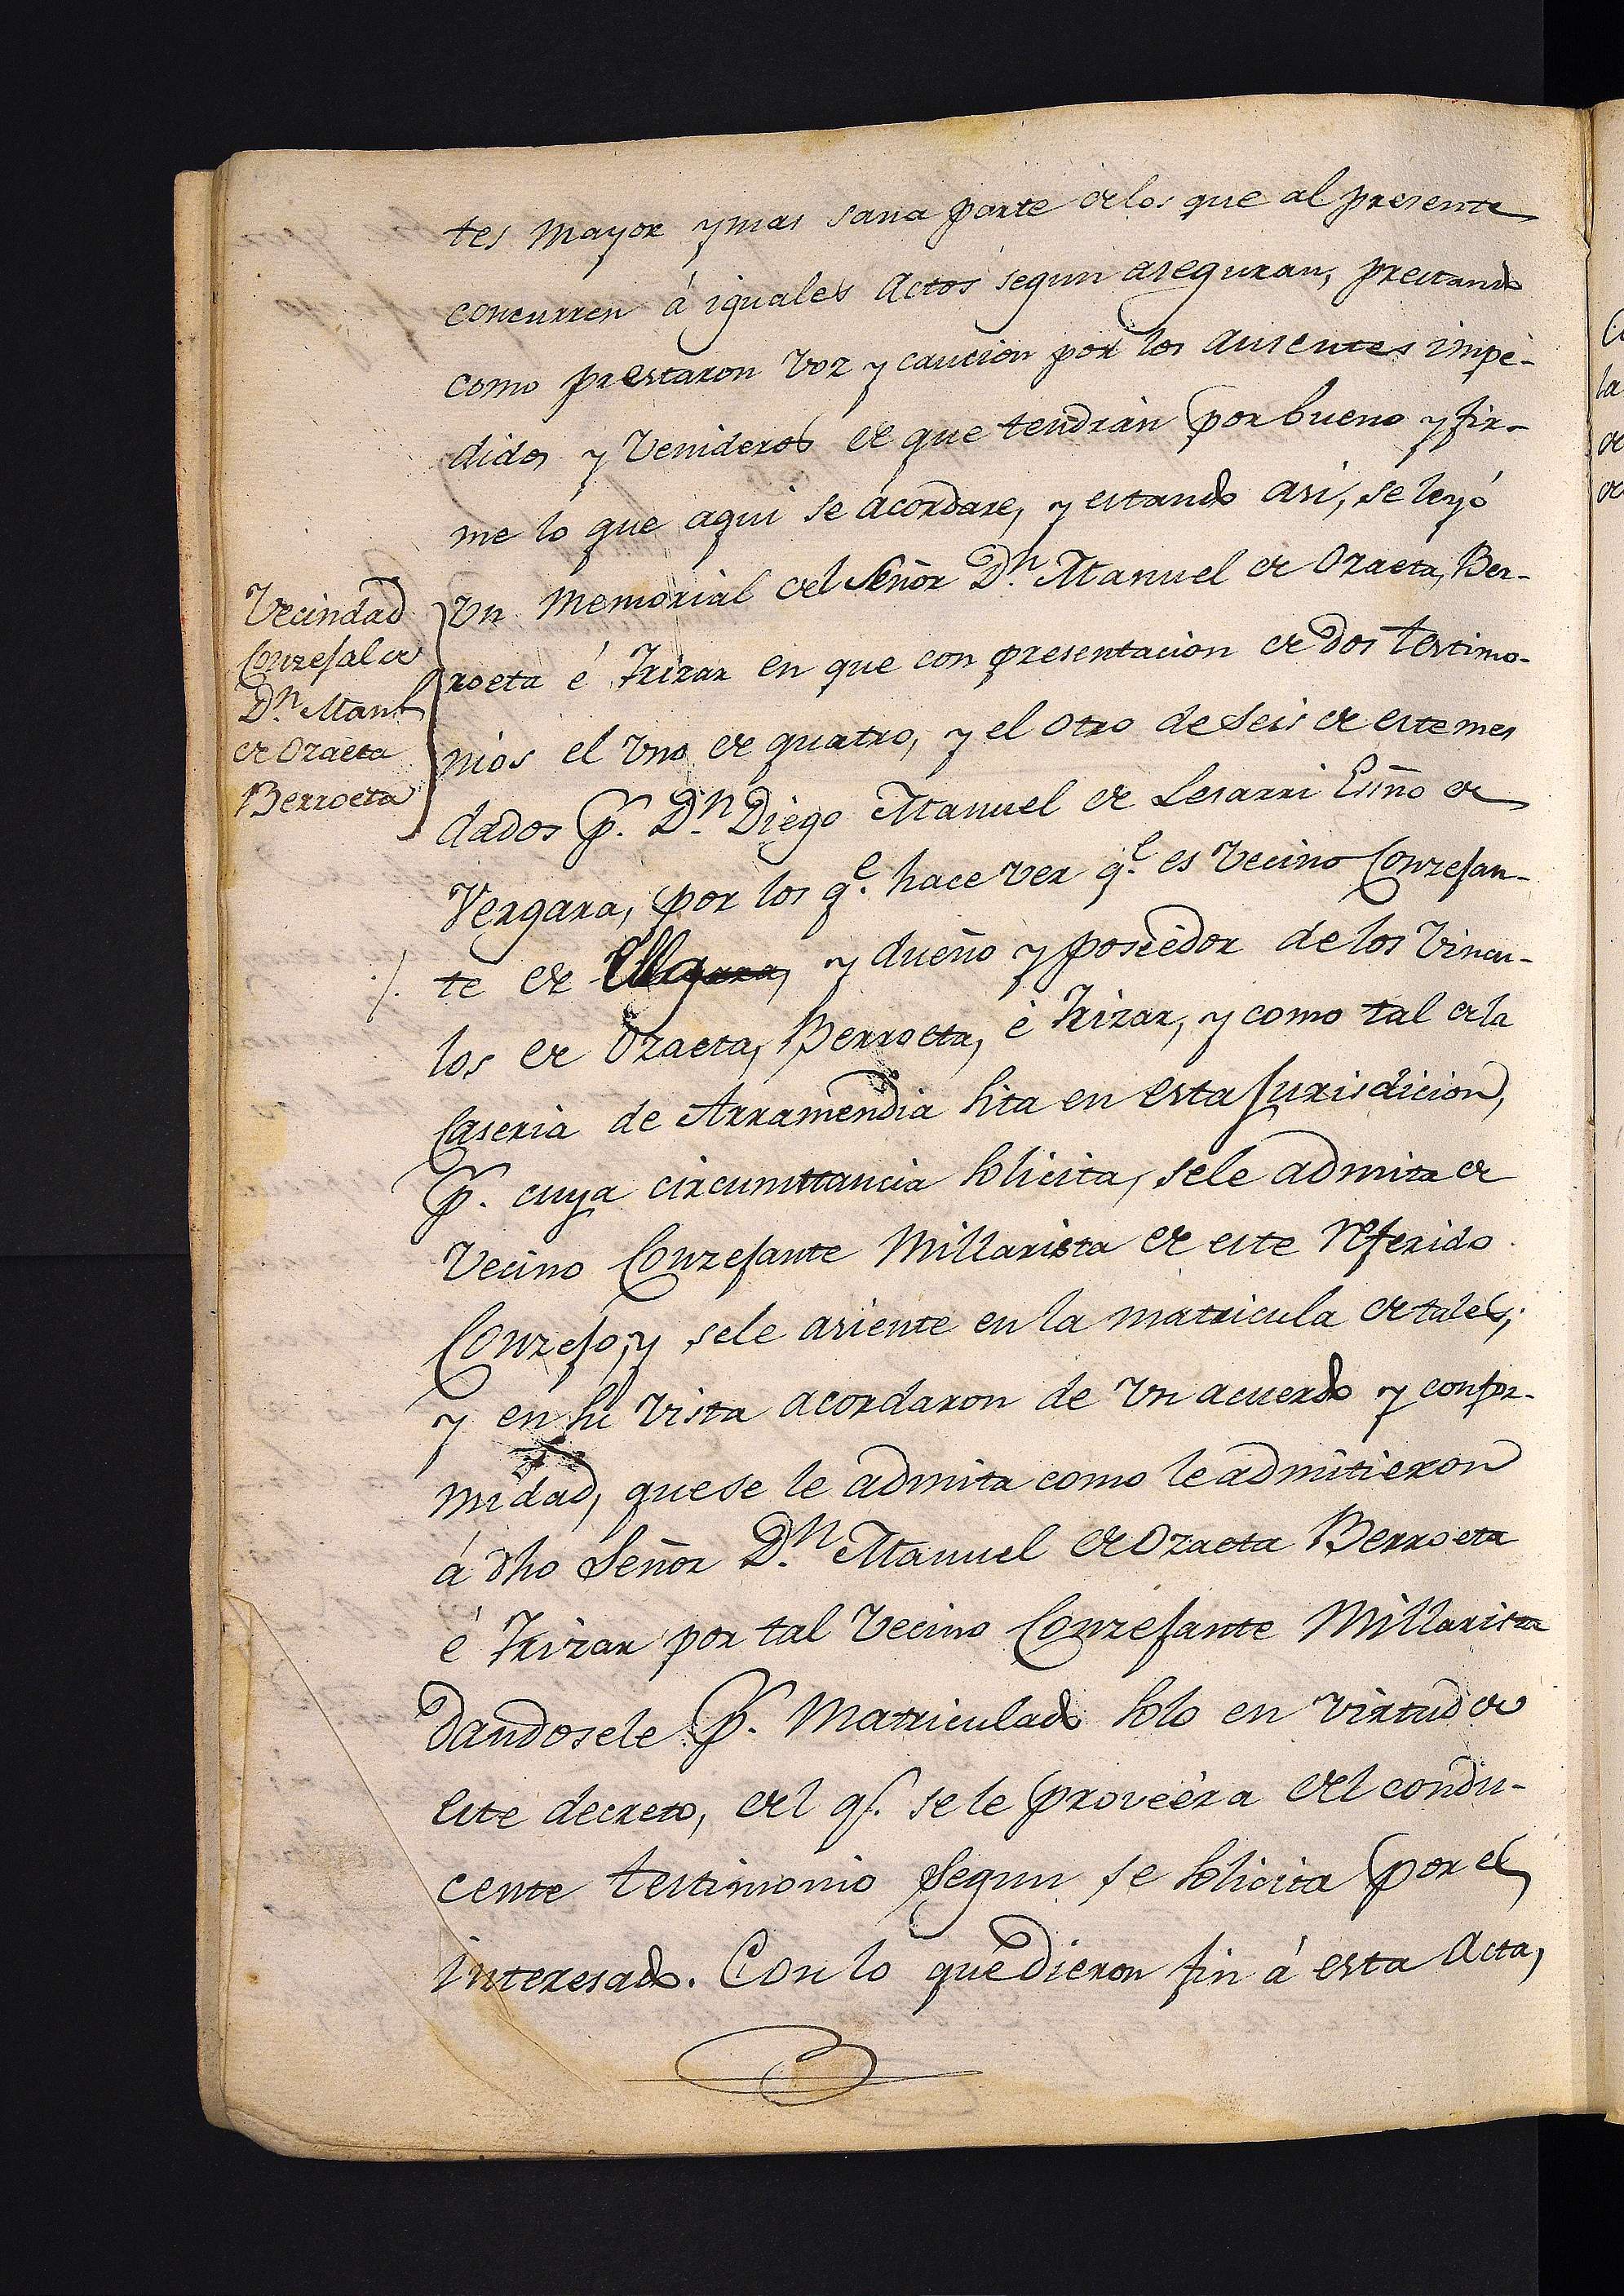 tes mayor y mas sana parte de los que al presente
concurren á iguales Actos segun aseguran, prestando
como prestaron voz y caucion por los ausentes impe-
didos y Venideros de que tendràn por bueno y fir-
me lo que aqui se acordare, y estando asi, se leyó
Vecindad
Conzejal de
Dn. Manl
de Ozaeta
Berroeta
Un Memorial del Señor Dn. Manuel de Ozaeta, Ber-
roeta é Irizar en que con presentacion de dos testimo-
nios el uno de quatro, y el otro de seis de este mes
dados p. Dn. Diego Manuel de Lesarri Esno. de
Vergara, por los qe. hace ver qe. es Vecino Conzejan-
te de y dueño y poseèdor de los Vincu-
los de Ozaeta, Berroeta, é Irizar, y como tal de la
Caseria de Arramendia sita en esta Jurisdicion,
p. cuya circumstancia solicita, se le admita de
Vecino Conzejante Millarista de este referido
Conzejo, y se le asiente en la matricula de tales;
y en su vista acordaron de un acuerdo y confor-
midad, que se le admita como le admitieron
á dho Señor Dn. Manuel de Ozaeta Berroeta
é Irizar por tal Vecino Conzejante Millarista
dandosele p. Matriculado solo en virtud de
este decreto, del ql. se le proveèra del condu-
cente testimonio segun se solicita por el
interesado. Con lo que dieron fin á esta Acta,